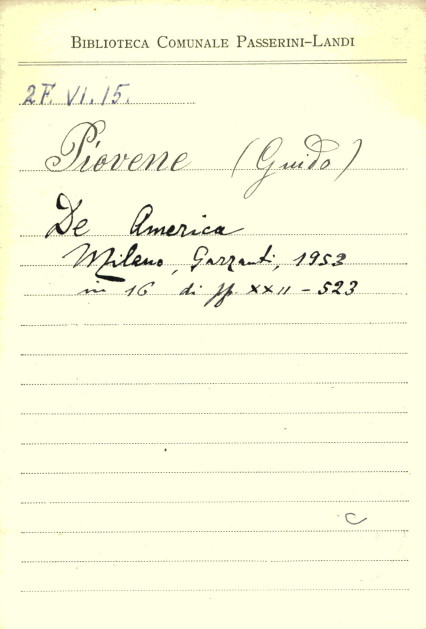 BIBLIOTECA COMUNALE PASSERINI-LANDI
2F. VI. 15.
Piovene (Guido)
De America
Milano, Garzanti, 1953
in 16 di pp. XXII - 523
C